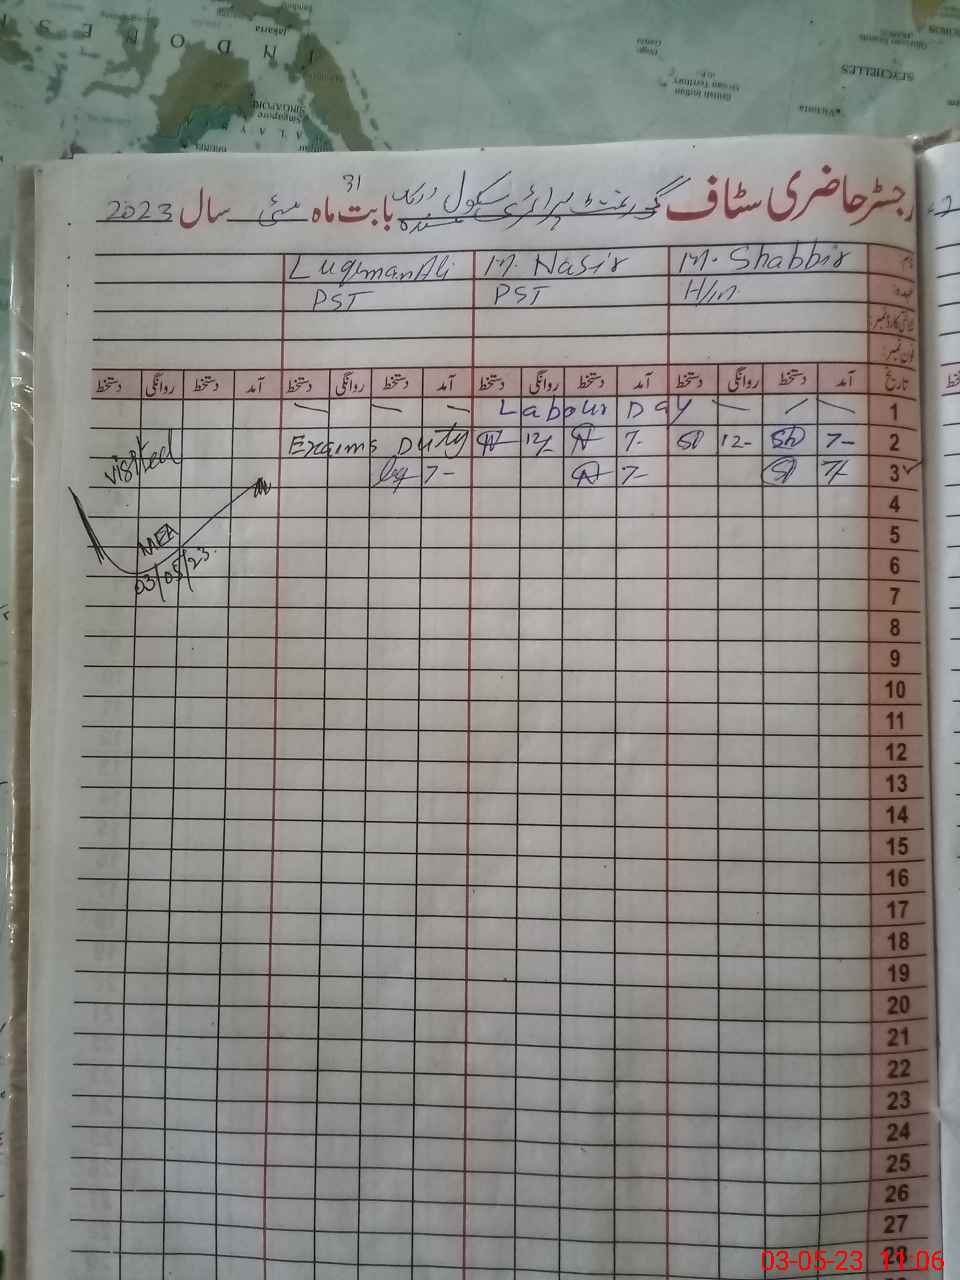 INDONES
Jakarta
SINGAPORE
Singapore
MALAY
British Indian
Ocean Territory
Victoria
SEYCHELLES
رجسٹر حاضری سٹاف گورنمنٹ پرائمری سکول بابت ماہ مئی 31 سال 2023
نام M. Shabbir M. Nasir Luqman Ali
عہدہ H/m PST PST
شناختی کارڈ نمبر:
فون نمبر:
تاریخ آمد دستخط روانگی دستخط آمد دستخط روانگی دستخط آمد دستخط روانگی دستخط آمد دستخط روانگی دستخط
1 Labour Day
2 7- Sh 12- Sh 7- N 12/- N Exams Duty
3 7/- Sh 7- N 7-
visited
4
5
MEA
6
03/05/23.
7
8
9
10
11
12
13
14
15
16
17
18
19
20
21
22
23
24
25
26
27
28
03-05-23 11:06